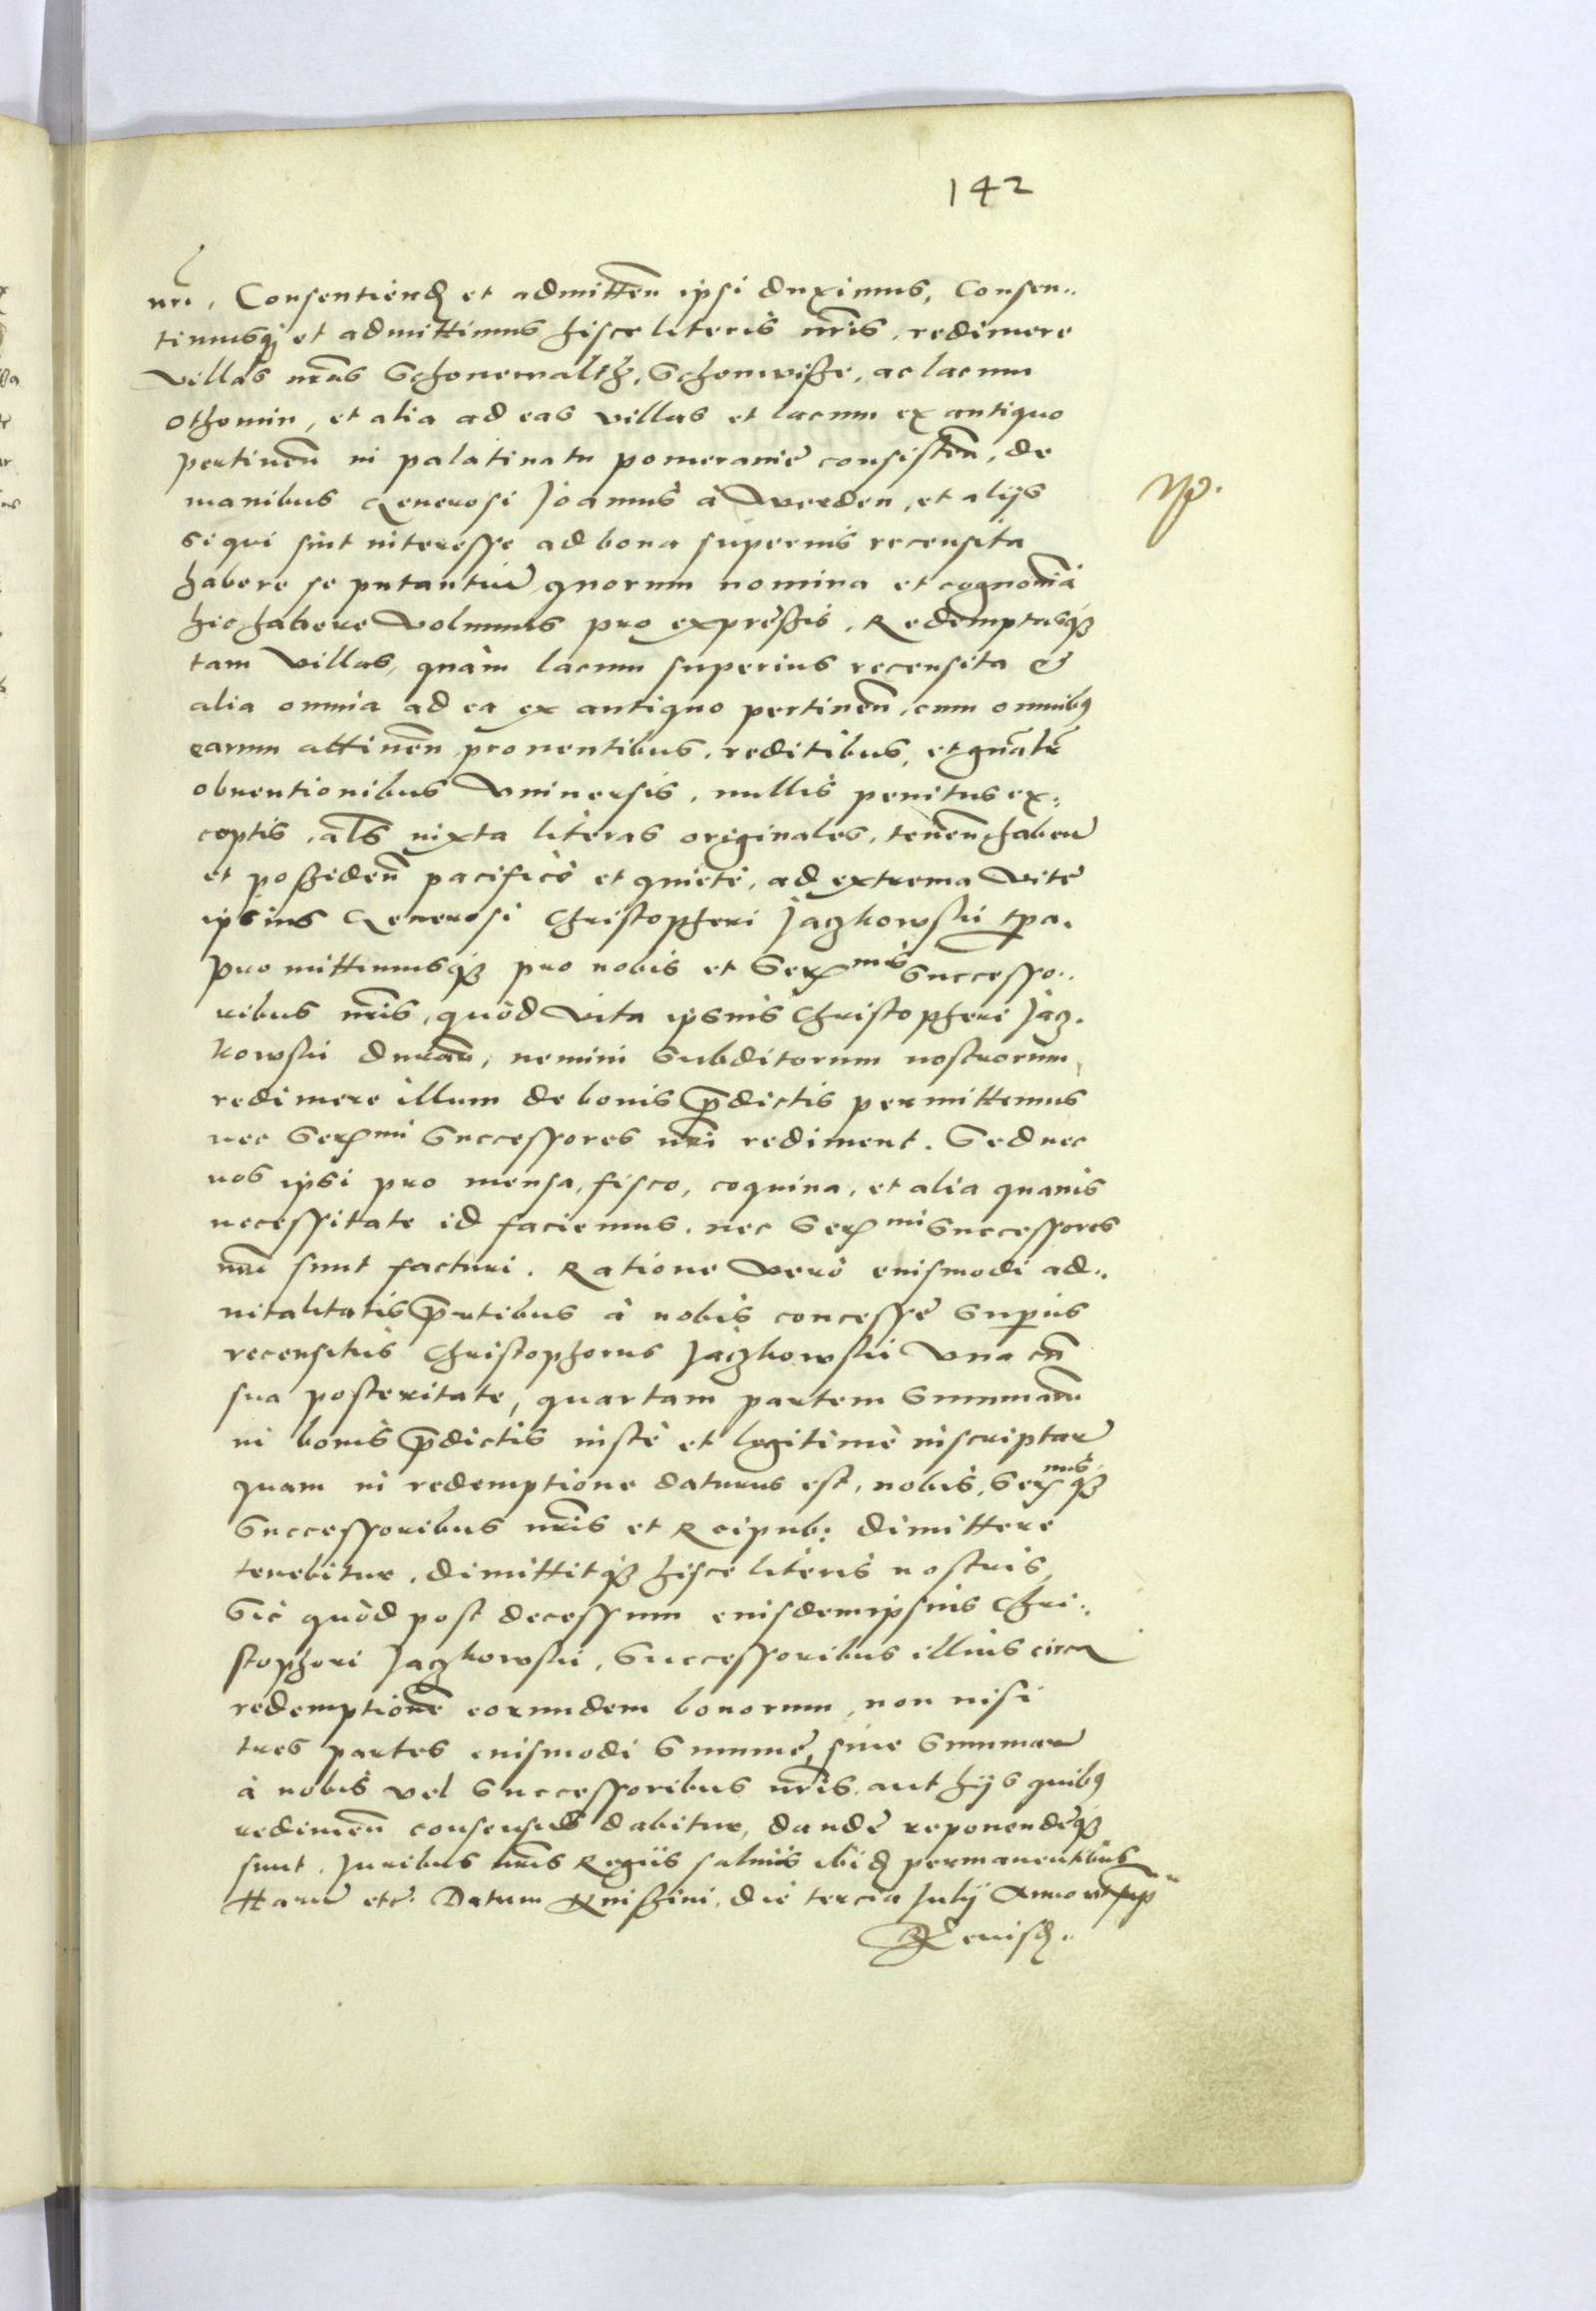 142
nri. Consentiend et admitten ipsi duximus, Consen..
timusq et admittimus hisce literis nris, redimere
villas nras Schonewalth, Schonwisze, ac lacum
Othomin, et alia ad eas villas et lacum ex antiquo
pertinen in palatinatu pomeranie consisten, de
manibus Generosi Joannis à Werden, et alijs
si qui sint interesse ad bona superius recensita
habere se putantiu quorum nomina et cognomia
hic habere volumus pro expressis. Redemptasq
tam villas, quàm lacum superius recensita &
alia omnia ad ea ex antiquo pertinen, cum omnibq
earum attinen prouentibus, reditibus, et gnalr
obuentionibus vniuersis, nullis penitus ex:
ceptis, als iuxta literas originales, tenen haben
et possiden pacificè et quietè, ad extrema vite
ipsius Generosi Christopheri Jaczkowski tpa.
Promittimusq pro nobis et Ser^mis Successo..
ribus nris, quòd vita ipsius Christopheri Jacz.
kowski duran, nemini Subditorum nostrorum,
redimere illum de bonis pdictis permittemus
nec Ser^mi Successores nri rediment. Sed nec
nos ipsi pro mensa, fisco, coquina, et alia quauis
necessitate id faciemus, nec Ser^mi Successores
nri sunt facturi. Ratione verò euismodi ad..
uitalitatis pntibus à nobis concesse Supius
recensitus Christophorus Jaczkowski vna cu
sua posteritate, quartam partem Summaru
in bonis pdictis iustè et legitimè inscriptar
quam in redemptione daturus est, nobis, Ser^mis q
Successoribus nris et Reipub: dimittere
tenebitur, dimittitq hisce literis nostris,
Sic quòd post decessum euisdem ipsius Chri..
stophori Jaczkowski, Successoribus illius circa
redemptione eorundem bonorum, non nisi
tres partes euismodi Summe, siue Summar
à nobis vel Successoribus nris, aut hijs quibq
redimen consensus dabitur, dande reponendeq
sunt. Juribus nris Regiis saluis ibid permanentibus
Haru etc: Datum Knissini, die tercia Julij Anno vt sup